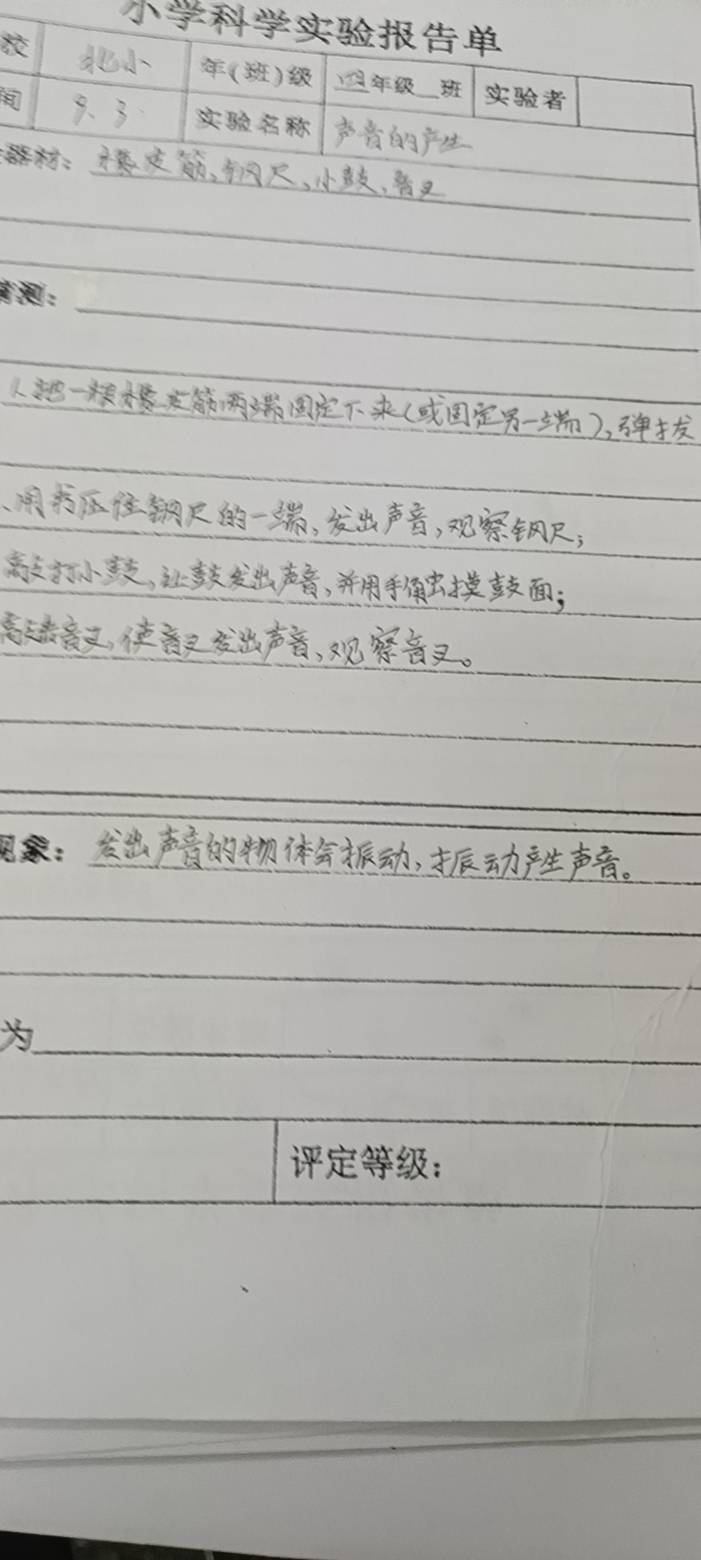 小学科学实验报告单
校 北小 年(班)级 四年级 班 实验者
间 9.3 实验名称 声音的产生
器材: 橡皮筋、钢尺、小鼓、音叉
猜测:
1、把一根橡皮筋两端固定下来(或固定另一端),弹拨
、用书压住钢尺的一端,发出声音,观察钢尺;
敲打小鼓,让鼓发出声音,并用手触摸鼓面;
敲击音叉,使音叉发出声音,观察音叉。
现象: 发出声音的物体会振动,振动产生声音。
为
评定等级: